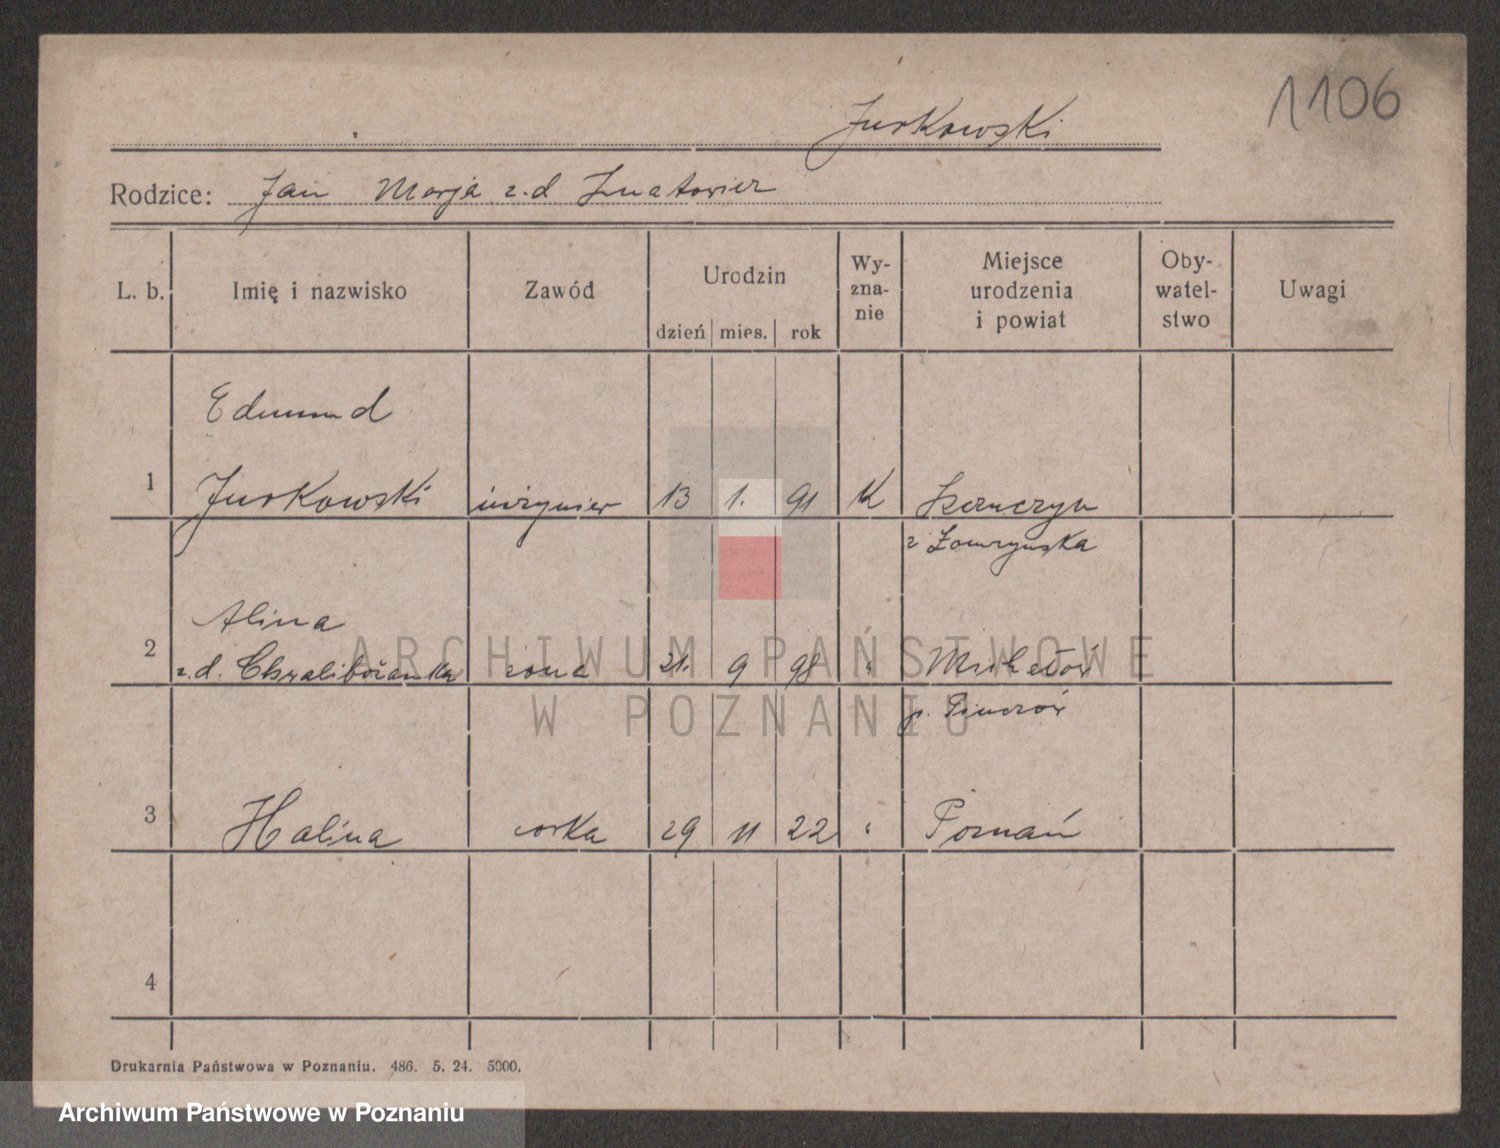 1106
Jurkowski
Rodzice: Jan Marja z.d
L. b. Imię i nazwisko Zawód Urodzin dzień mies. rok Wy-zna-nie Miejsce urodzenia i powiat Oby-watel-stwo Uwagi
Edmund
1 Jurkowski inżynier 13 1. 91 K
Alina
2 z.d. Chwalibożanka żona 21. 9 98 " Michałów
p. Pinczów
3 Halina corka 29 11 22 " Poznań
4
Drukarnia Państwowa w Poznaniu. 486. 5. 24. 5000.
ARCHIWUM PAŃSTWOWE
W POZNANIU
Archiwum Państwowe w Poznaniu